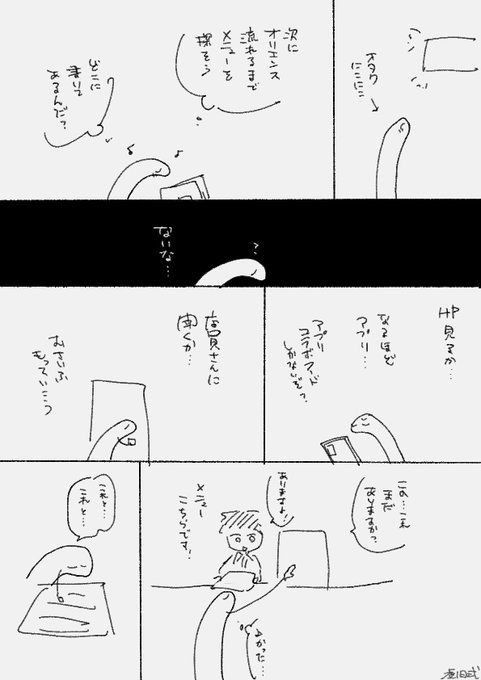 オタク
にこにこ
次に
オリエンス
流れるまで
メニューを
探そう
どこに
書いて
あるんだ?
?
ないな…
HP見るか…
なるほど
アプリ…
アプリ
コラボフード
しかないぞ?
店員さんに
聞くか…
おさいふ
もっていこう
この…これ
まだ
ありますか?
ありますよ!
メニュー
こちらです!
よかった…
これと…
これと…